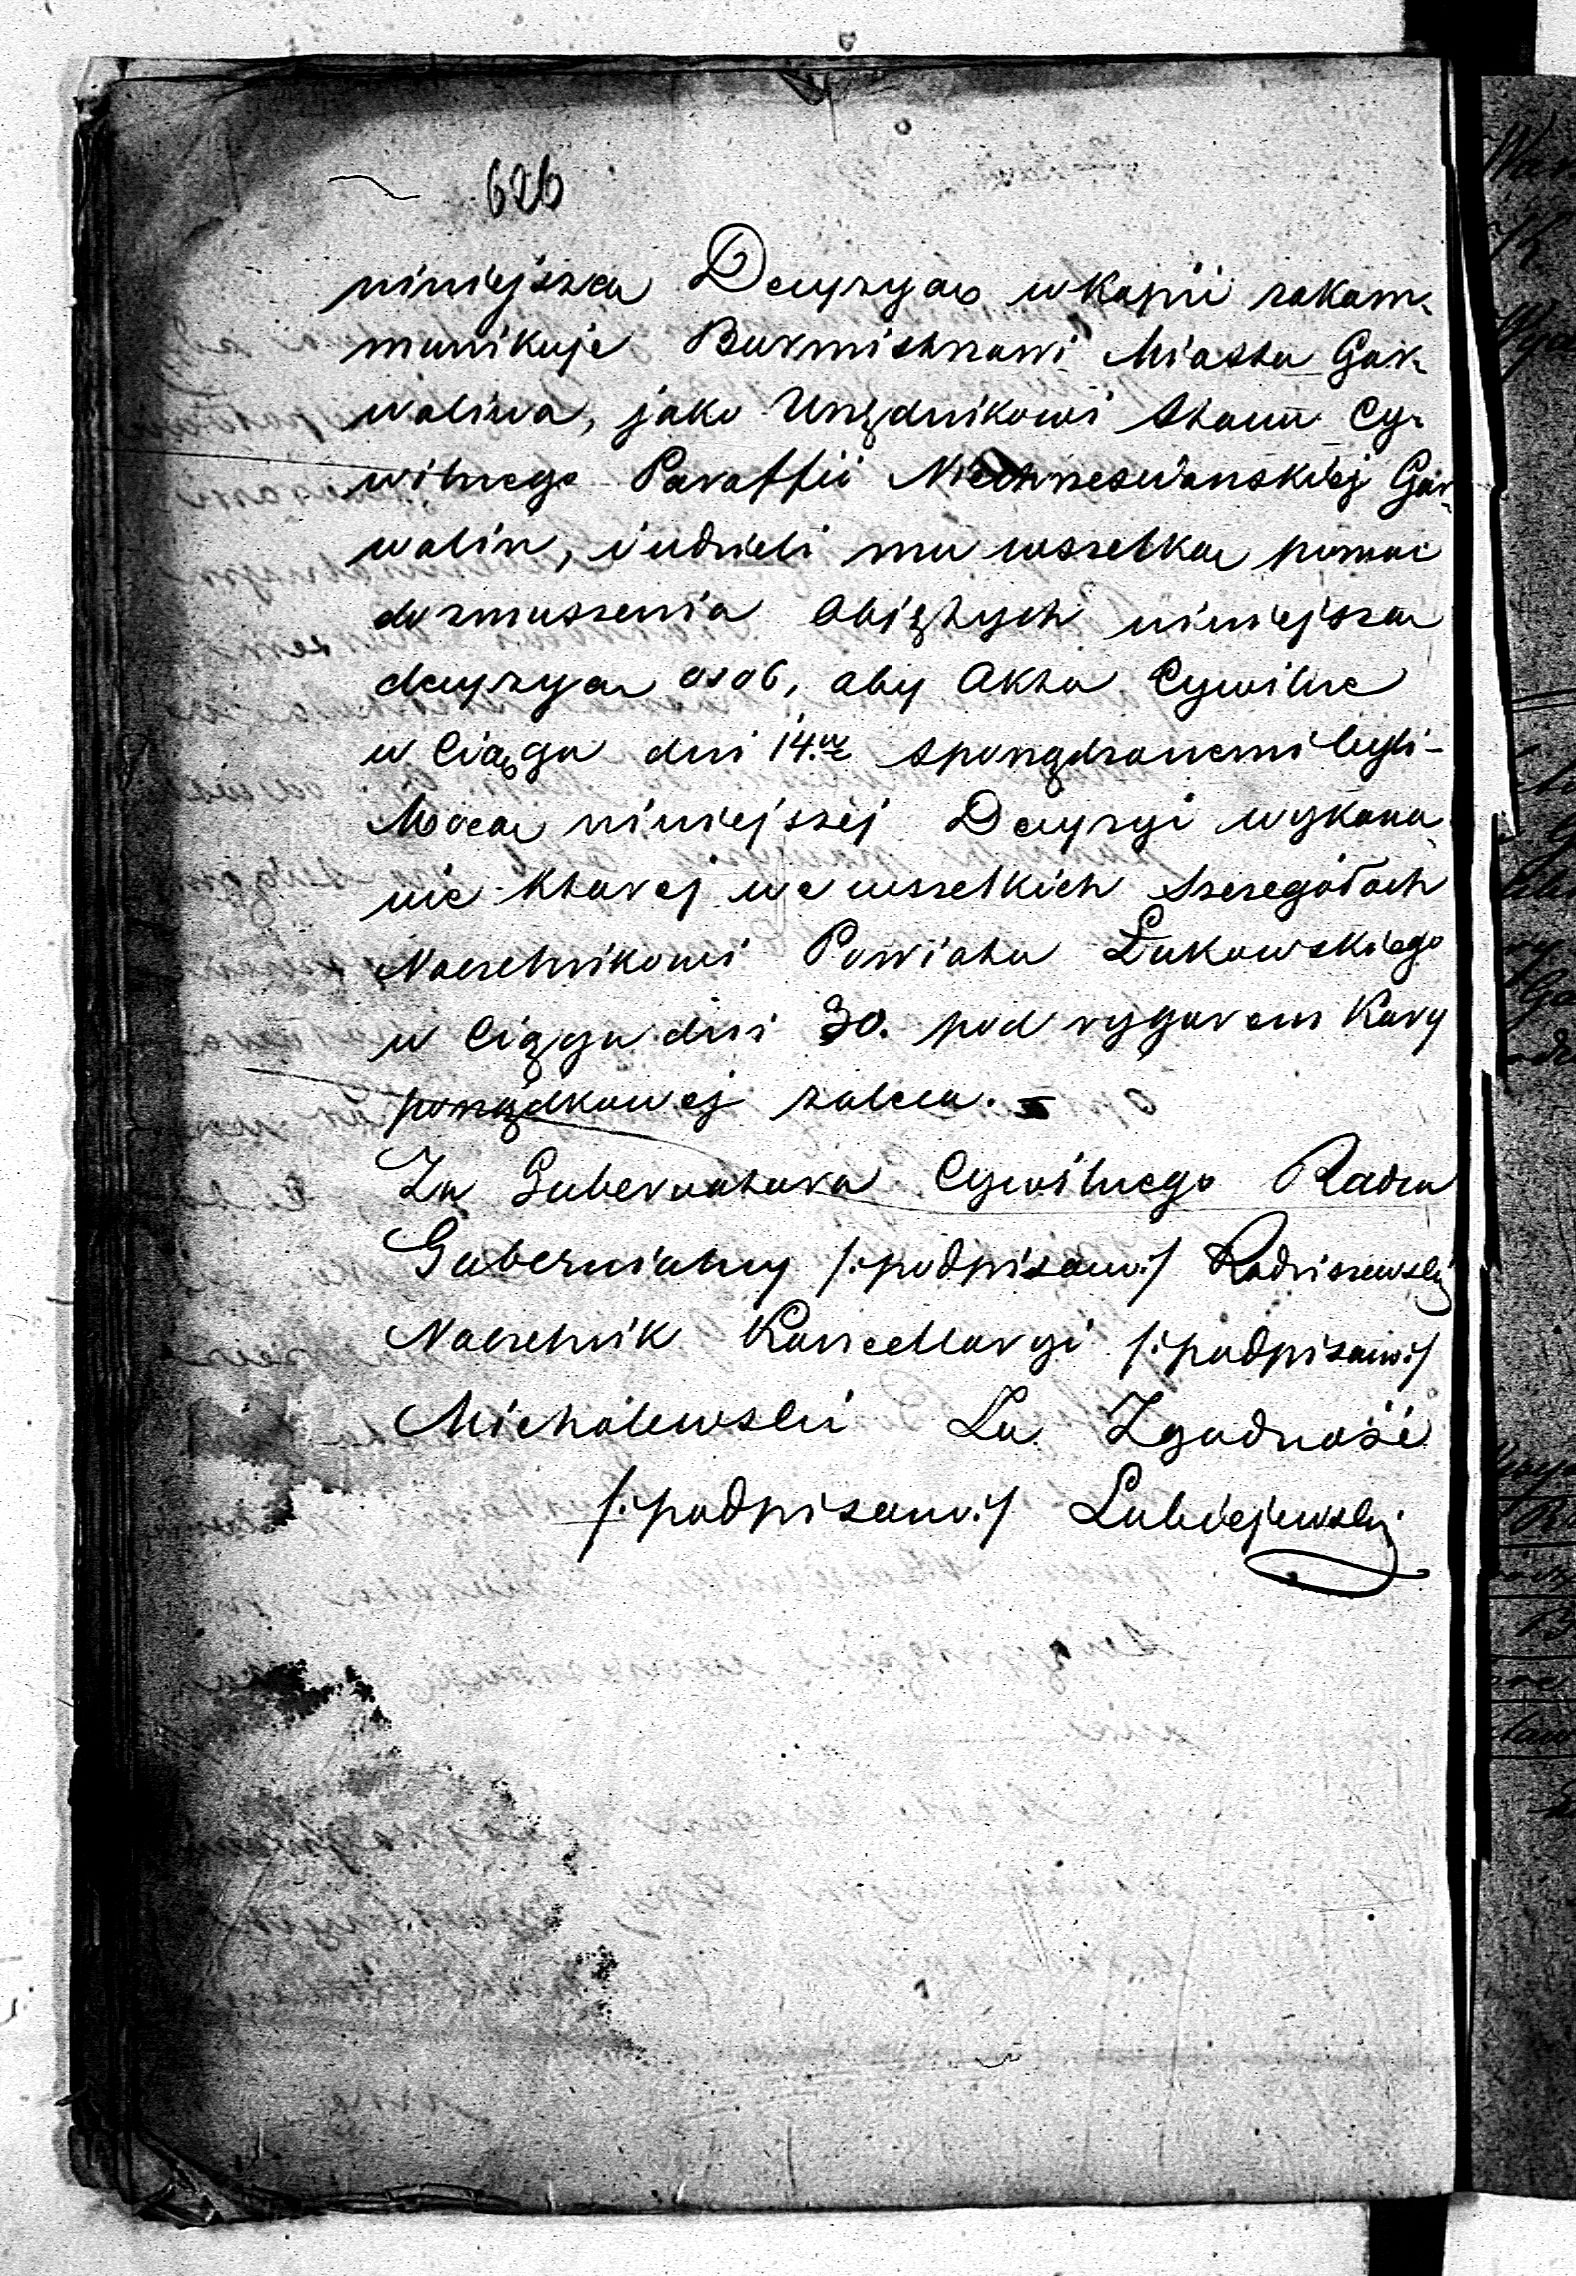 626
niniejszą Decyzyą w kopii zakom-
munikuje Burmistrzowi Miasta Gar-
wolina, jako Urzędnikowi Stanu Cy-
wilnego Paraffii Niechrześcianskiej Gar-
wolin, i udzieli mu wszelką pomoc
do zmuszenia objętych niniejszą
decyzyą osob, aby Akta Cywilne
w ciągu dni 14.u sporządzonemi byli -
Mocą niniejszéj Decyzyi wykona-
nie ktorej we wszelkich szczegółach
Naczelnikowi Powiatu Łukowskiego
w ciągu dni 30. pod rygorem Kary
porządkowej zaleca. -
Za Gubernatora Cywilnego Radca
Gubernialny /:podpisano:/ Radziszewski
Naczelnik Kancellaryi /:podpisano:/
Michalewski Za Zgodność
/:podpisano:/